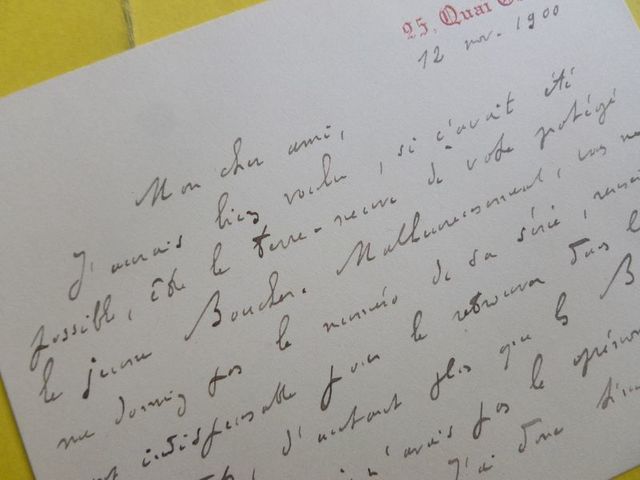 25, Quai
12 nov. 1900
Mon cher ami,
J'aurais bien voulu, si c'avait été
possible, être le terre-neuve de votre protégé
le jeune Boucher. Malheureusement, vous ne
me donnez pas le numéro de sa série,
indispensable pour le retrouver dans
d'autant plus que les B
n'avais pas le
J'ai donc